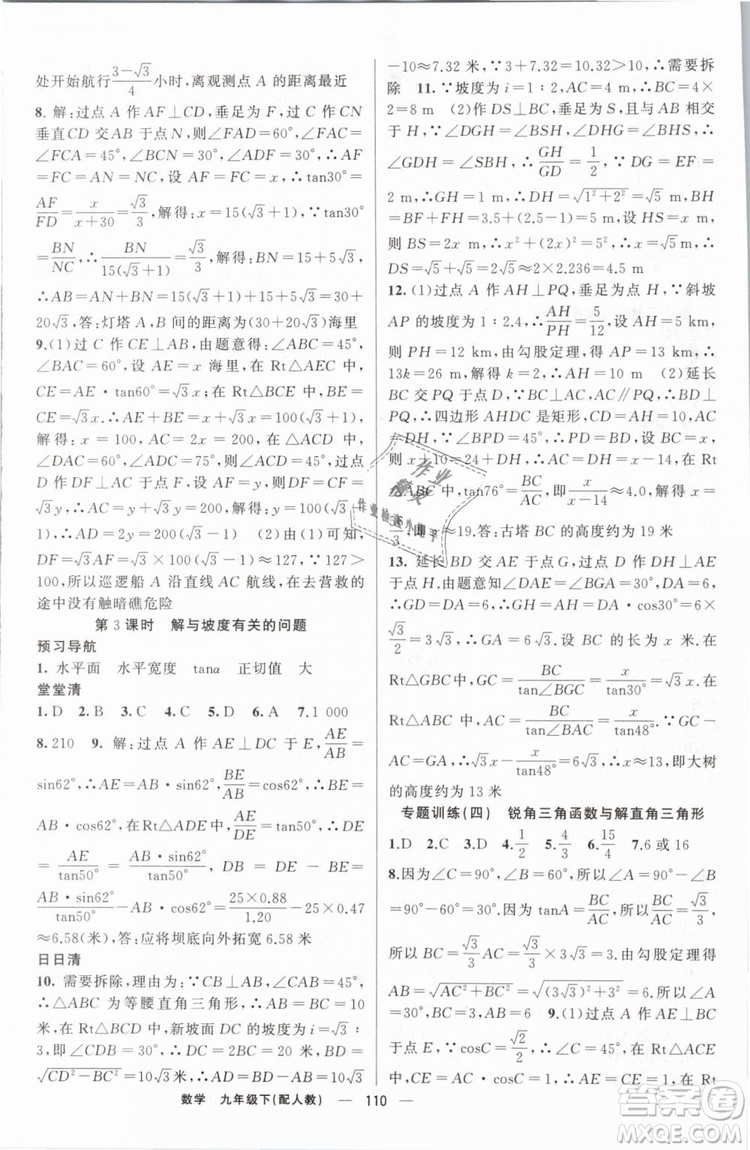 处开始航行(3-√3)/4小时,离观测点 A 的距离最近
8. 解:过点 A 作 AF⊥CD,垂足为 F,过 C 作 CN
垂直CD 交 AB 于点 N,则∠FAD=60°,∠FAC
=∠FCA=45°,∠BCN=30°,∠ADF=30°,∴AF
=FC=FN=NC,设 AF=FC=x,∴tan30°=
AF/FD=x/(x+30)=√3/3,解得:x=15(√3+1),∵tan30°
=BN/NC,∴BN/(15(√3+1))=√3/3,解得:BN=15+5√3,
∴AB=AN+BN=30(√3+1)+15+5√3
20√3,答:灯塔 A、B 间的距离为(
+20√3)海里
9.(1)过 C 作 CE⊥AB,由题意得:∠ABC=45°,
∠BAC=60°,设 AE=x 海里,在 Rt△AEC 中,
CE=AE·tan60°=√3x;在 Rt△BCE 中,BE=
CE=√3x,∴AE+BE=x+√3x=100(√3+1),解
得:x=100,AC=2x=200,在△ACD 中,
∠DAC=60°,∠ADC=75°,则∠ACD=45°,过
点 D 作 DF⊥AC 于点 F,设 AF=y,则 DF=
CF=√3y,∴AC=y+√3y=200,解得:y=
100(√3-1),∴AD=2y=200(√3-1) (2)由(1)可知,
DF=√3AF=√3×100(√3-1)≈127,∵127>
100,所以巡逻船 A 沿直线 AC 航线,在去营救的
途中没有触暗礁危险
第 3 课时 解与坡度有关的问题
预习导航
1. 水平面 水平宽度 tanα 正切值 大
堂堂清
1.D 2.B 3.C 4.C 5.D 6.A 7.1 000
8.210 9. 解:过点 A 作 AE⊥DC 于 E,AE/AB=
sin62°,∴AE=AB·sin62°,BE/AB=cos62°,∴BE=
AB·cos62°,在 Rt△ADE 中,AE/DE=tan50°,∴DE
=AE/tan50°=AB·sin62°/tan50°,∴DB=DE-BE=
AB·sin62°/tan50°-AB·cos62°=25×0.88/1.20-25×0.47
≈6.58(米),答:应将坝底向外拓宽 6.58 米
日日清
10. 需要拆除,理由为:∵CB⊥AB,∠CAB=45°,
∴△ABC 为等腰直角三角形,∴AB=BC=10
米,在 Rt△BCD 中,新坡面 DC 的坡度为 i=1:
√3,即∠CDB=30°,∴DC=2BC=20 米,BD=
√(CD²-BC²)=10√3 米,∴AD=BD-AB=10√3
-10≈7.32 米,∵3+7.32=10.32>10,∴需要拆
除 11.(1)∵坡度为 i=1:2,AC=4 m,∴BC=4×
2=8 m (2)作 DS⊥BC,垂足为 S,且与 AB 相交
于 H,∵∠DGH=∠BSH,∠DHG=∠BHS,∴
∠GDH=∠SBH,∴GH/GD=1/2,∵DG=EF=
2 m,∴GH=1 m,∴DH=√(1²+2²)=√5 m,
BH=BF+FH=3.5+(2.5-1)=5 m,设 HS=x m,
则 BS=2x m,∴x²+(2x)²=5²,∴x=√5 m,∴
DS=√5+√5=2√5≈2×2.236≈4.5 m
12.(1)过点 A 作 AH⊥PQ,垂足为点 H,∵斜坡
AP 的坡度为 1:2.4,∴AH/PH=5/12,设 AH=
5k km,则 PH=12k km,由勾股定理,得 AP=
13k=26 m,解得 k=2,∴AH=10 m (2)延长
BC 交 PQ 于点 D,∵BC⊥AC,AC∥PQ,∴BD
⊥PQ,∴四边形 AHDC 是矩形,CD=AH=10,
AC=DH,∵∠BPD=45°,∴PD=BD,设 BC=x,
则 x+10=24+DH,∴AC=DH=x-14,在 Rt
△ABC 中,tan76°=BC/AC,即 x/(x-14)
≈19.答:古塔 BC 的高度约为 19 米
13. 延长 BD 交 AE 于点 G,作 DH⊥AE 于点 H,
由题意知∠DAE=∠BGA=30°,DA=6,
∴GD=DA=6,∴GH=AH=DA·cos30°=6×
√3/2=3√3,∴GA=6√3,设 BC 的长为 x 米,在
Rt△GBC 中,GC=BC/tan∠BGC=BC/tan30°=√3x,在
Rt△ABC 中,AC=BC/tan∠BAC=x/tan48°,∵GC-
AC=GA,∴√3x-x/tan48°=6√3,∴x≈13,即大树
的高度约为 13 米
专题训练(四) 锐角三角函数与解直角三角形
1.D 2.C 3.D 4.1/2 5.4/3 6.4/15 7.6 或 16
8.因为∠C=90°,∠B=60°,所以∠A=90°-60°
=30°,因为∠C=90°,所以 tanA=BC/AC,所以√3/3=
BC/AC,所以 BC=√3/3AC=√3/3×3√3=3,由勾股定理得
AB=√(AC²+BC²)=√((3√3)²+3²)=6,所以∠A=
30°,AB=6,BC=3 9.(1)过点 A 作 AE⊥BC
于点 E,∵cosC=√2/2,∴∠C=45°,在 Rt△ACE
中,CE=AC·cosC=1,∴AE=CE=1,在
数学 九年级下(配人教) — 110 —
作业精灵
作业检查小助手
答案圈
MXQE.COM